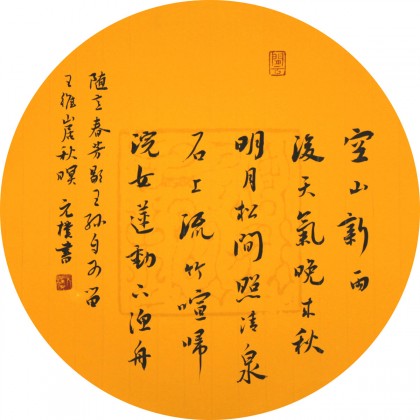 空山新雨
後天氣晚来秋
明月松間照清泉
石上流竹喧歸
浣女蓮動下渔舟
随意春芳歇王孫自可留
王維山居秋暝 元樸書